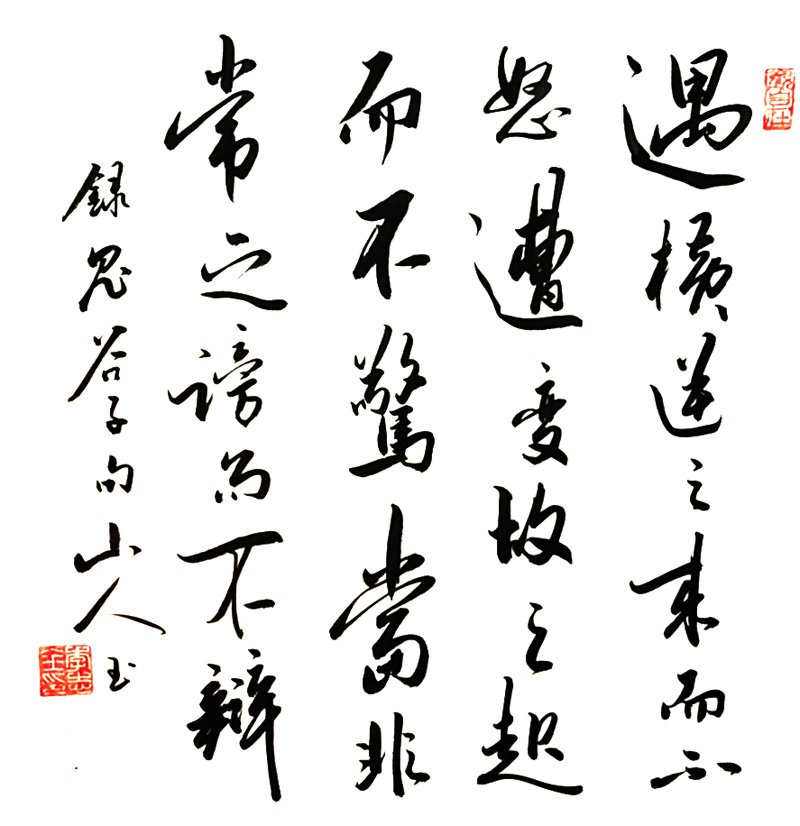 遇橫逆之来而不
怒遭变故之起
而不驚當非
常之谤而不辯
録鬼谷子句山人玉